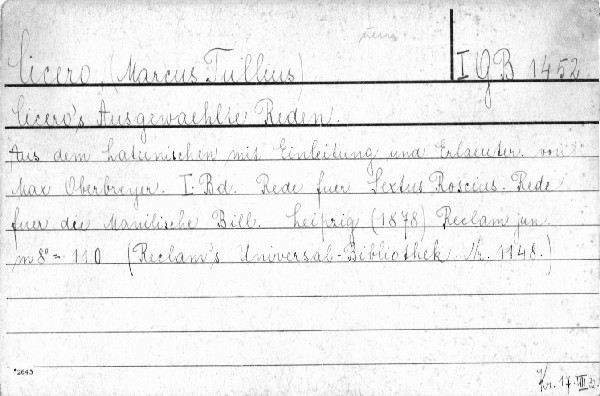 Cicero, (Marcus Tullius)
I GB 1452
Cicero's Ausgewaehlte Reden.
Aus dem Lateinischen mit Einleitung und Erlaeuter. von
Max Oberbreyer. I. Bd. Rede fuer Sextus Roscius. Rede
fuer die Manilische Bill. Leipzig (1878) Reclam jun.
m8° 110 (Reclam's Universal-Bibliothek Nr. 1148.)
*2643
Kr. 17.